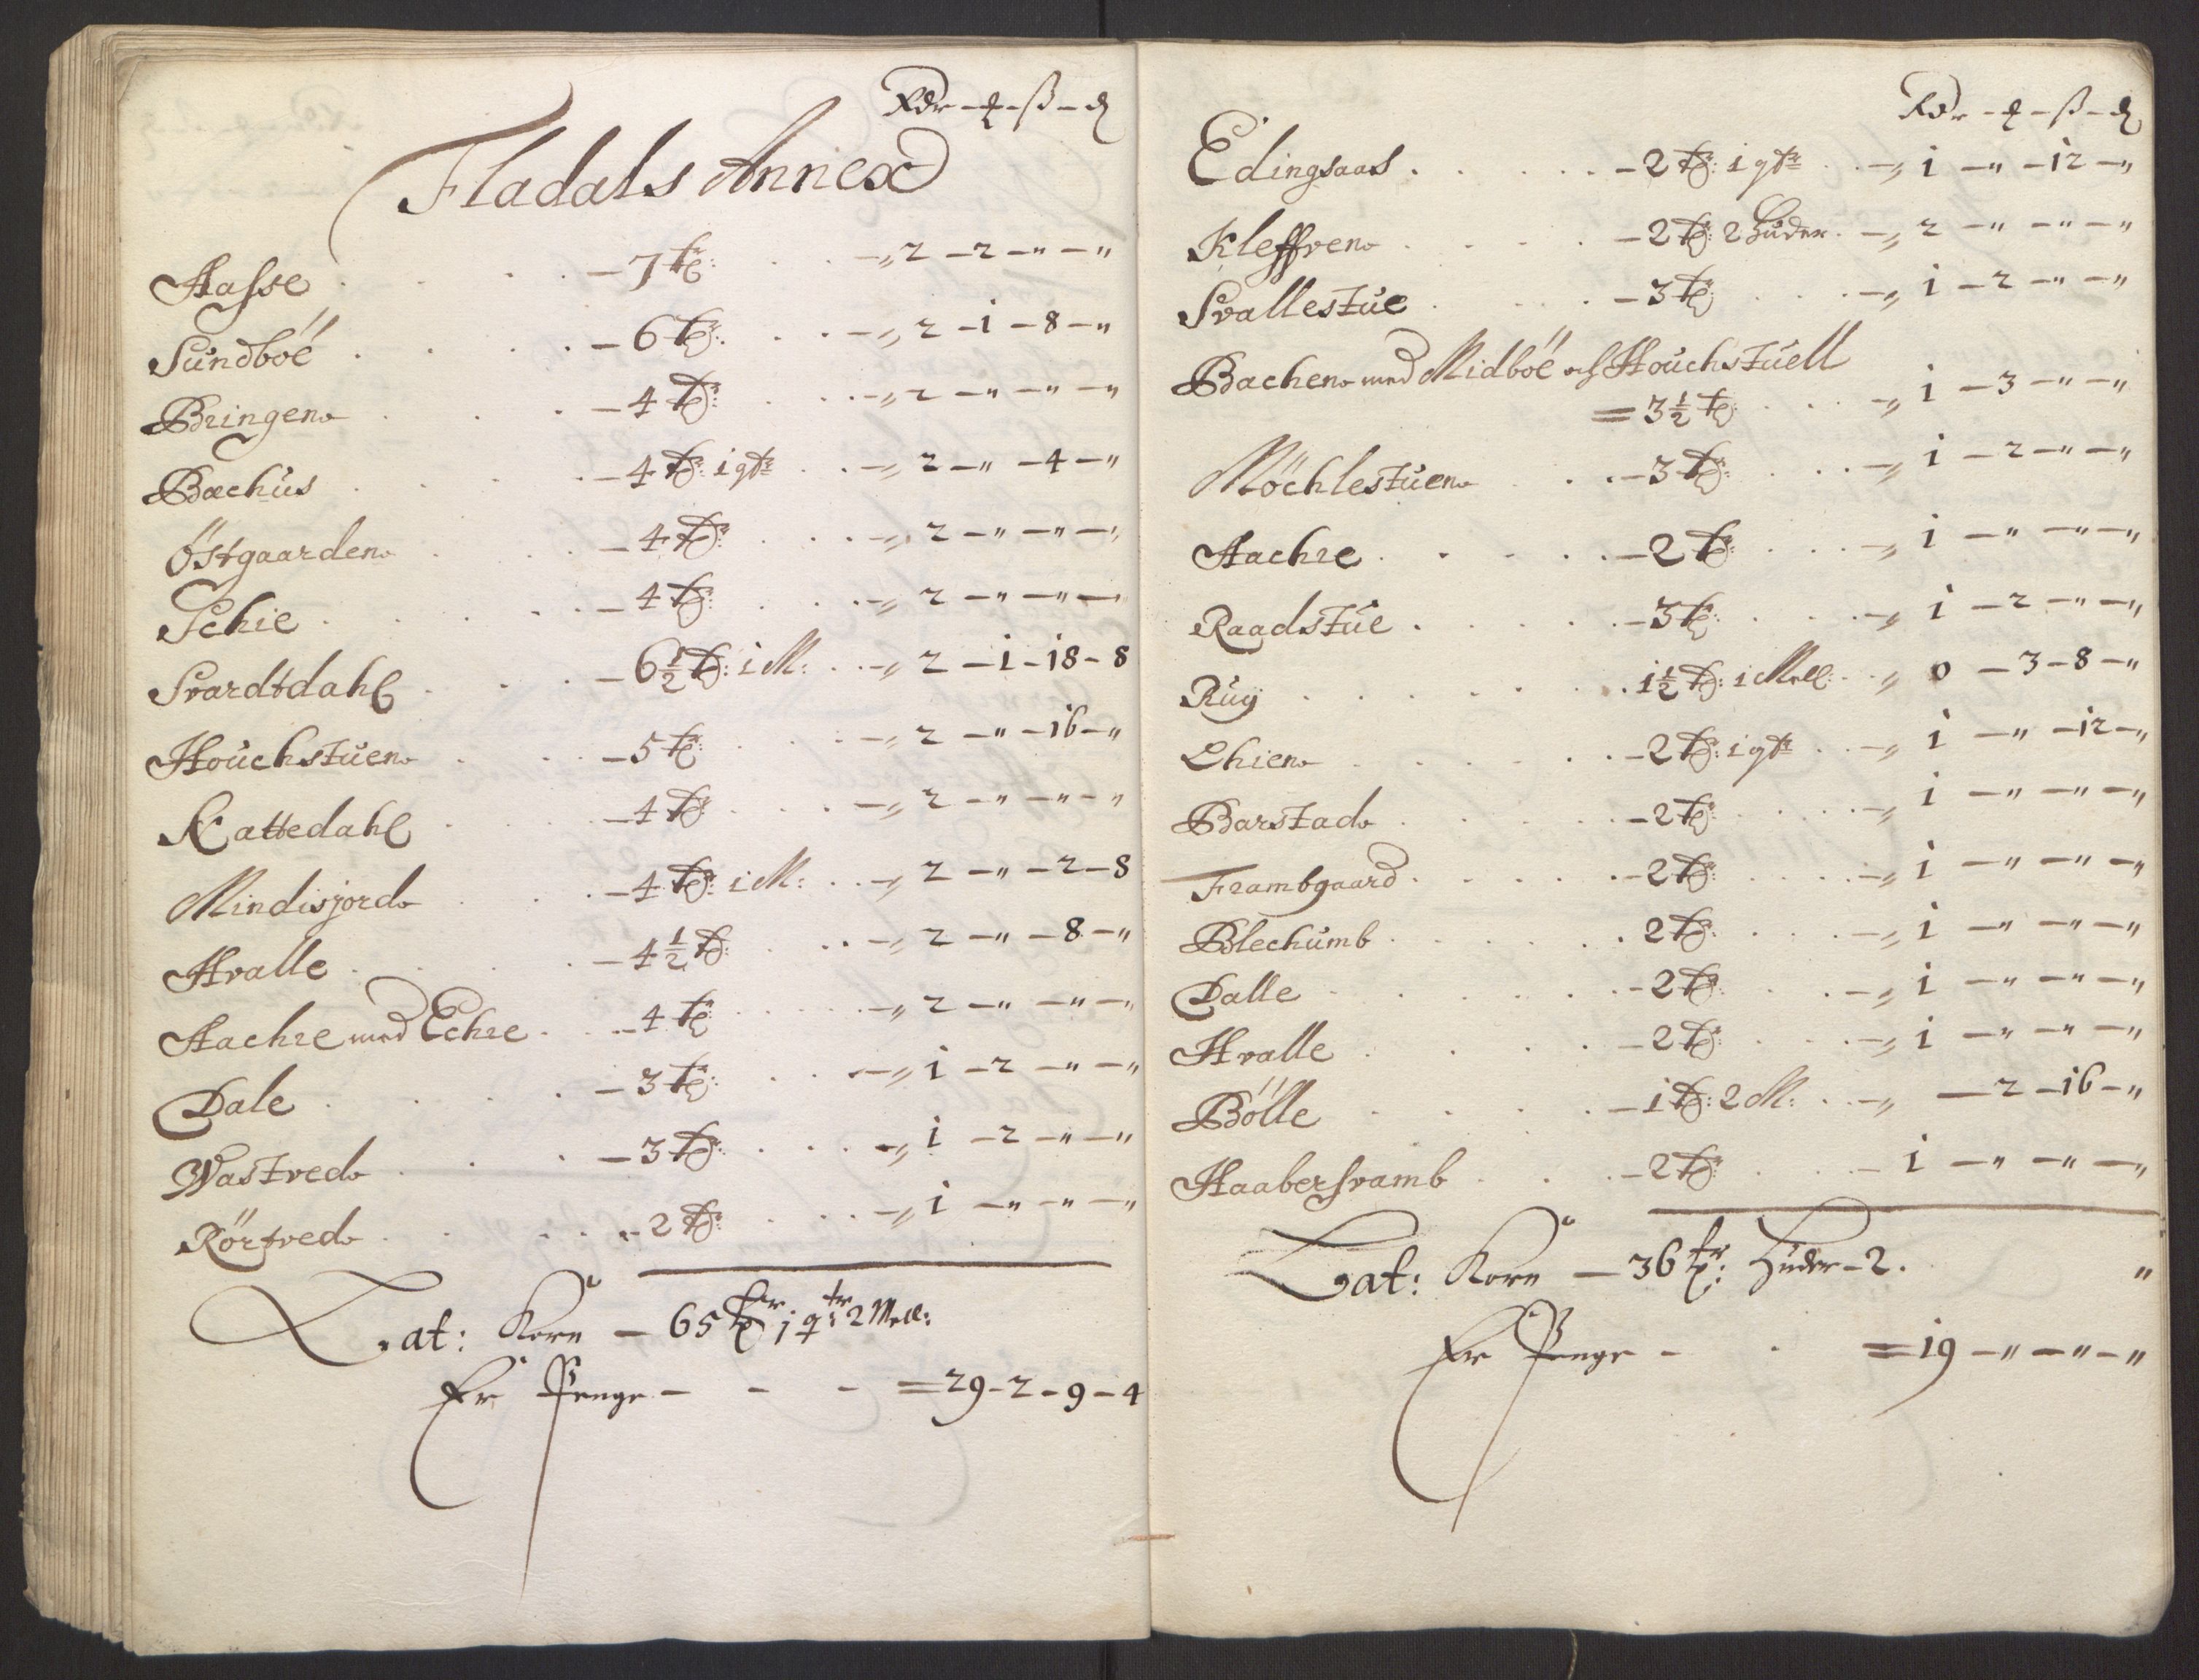 Rdr - ₰ - ß - ₰
Fladals Annex
Aasse . . . - 7 tr: . . -„ 2 - 2 - „ - „
Sundböe . . . - 6 tr: . . -„ 2 - 1 - 8 - „
Bringen . . . - 4 tr: . . -„ 2 - „ - „ - „
Bachus . . . - 4 tr: 1 qtr . . -„ 2 - „ - 4 - „
Östgaarden . . . - 4 tr: . . -„ 2 - „ - „ - „
Schie . . . - 4 tr: . . -„ 2 - „ - „ - „
Svardtdahl . . . - 6½ tr: 1 M: . . -„ 2 - 1 - 18 - 8
Houchstuen . . . - 5 tr: . . -„ 2 - „ - 16 - „
Kattedahl . . . - 4 tr . . -„ 2 - „ - „ - „
Mindisjord . . . - 4 tr: 1 M: . . -„ 2 - „ - 2 - 8
Hvalle . . . - 4½ tr: . . -„ 2 - „ - 8 - „
Aachre med Echre . . . - 4 tr: . . -„ 2 - „ - „ - „
Dale . . . - 3 tr: . . -„ 1 - 2 - „ - „
Wastved . . . - 3 tr: . . -„ 1 - 2 - „ - „
Rörtved . . . - 2 tr: . . -„ 1 - „ - „ - „
Lat: Korn - 65 tr 1 qtr: 2 Mell:
Er Penge - - - = 29 - 2 - 9 - 4
Rdr - ₰ - ß - ₰
Edingsaas . . . - 2 tr: 1 qtr . . -„ 1 - „ - 12 - „
Kleffven . . . - 2 tr: 2 Huder . -„ 2 - „ - „ - „
Svallestue . . . - 3 tr: . . -„ 1 - 2 - „ - „
Bachen med Midböe och Houchstuell
= 3½ tr: . . -„ 1 - 3 - „ - „
Möchlestuen . . . - 3 tr: . . -„ 1 - 2 - „ - „
Aachre . . . - 2 tr: . . -„ 1 - „ - „ - „
Raadstue . . . - 3 tr: . . -„ 1 - 2 - „ - „
Ruy . . . 1½ tr: 1 Mell: . „ 0 - 3 - 8 - „
Lhien . . . - 2 tr: 1 qtr . . -„ 1 - „ - 12 - „
Barstad . . . - 2 tr: . . -„ 1 - „ - „ - „
Frambgaard . . . - 2 tr: . . -„ 1 - „ - „ - „
Blechumb . . . 2 tr: . . -„ 1 - „ - „ - „
Dalle . . . - 2 tr: . . -„ 1 - „ - „ - „
Hvalle . . . - 2 tr: . . -„ 1 - „ - „ - „
Bölle . . . - 1 tr: 2 M: . . -„ - 2 - 16 - „
Haabersvamb . . . - 2 tr: . . - 1 - „ - „ - „
Lat: Korn - 36 tr: Huder - 2 . „
Er Penge - . = 19 - „ - „ - „